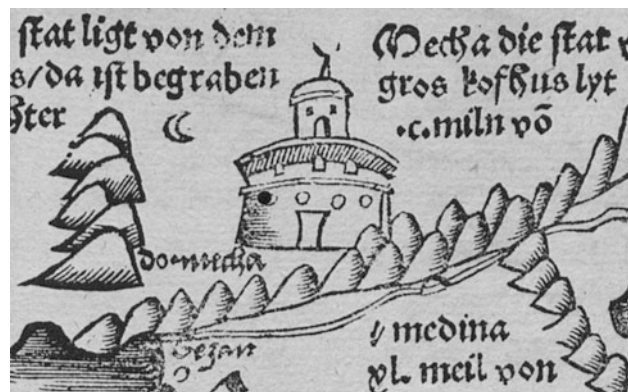 stat ligt von dem
s/da ist begraben
hter
Mecha die stat v
gros kofhus lyt
.c. miln võ
do mecha
medina
xl. meil von